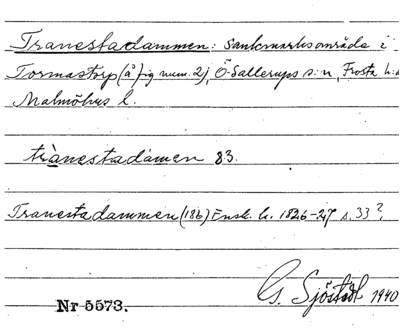 Tranestadammen: Sankmarksområde i
Tormastorp (å fig num. 2), Ö. Sallerups s:n, Frosta h:d
Malmöhus l.
trànestadàmen 83.
Tranestadammen (186) Ensk. h. 1826-27 s. 33?.
G. Sjöstedt 1940
Nr 5573.